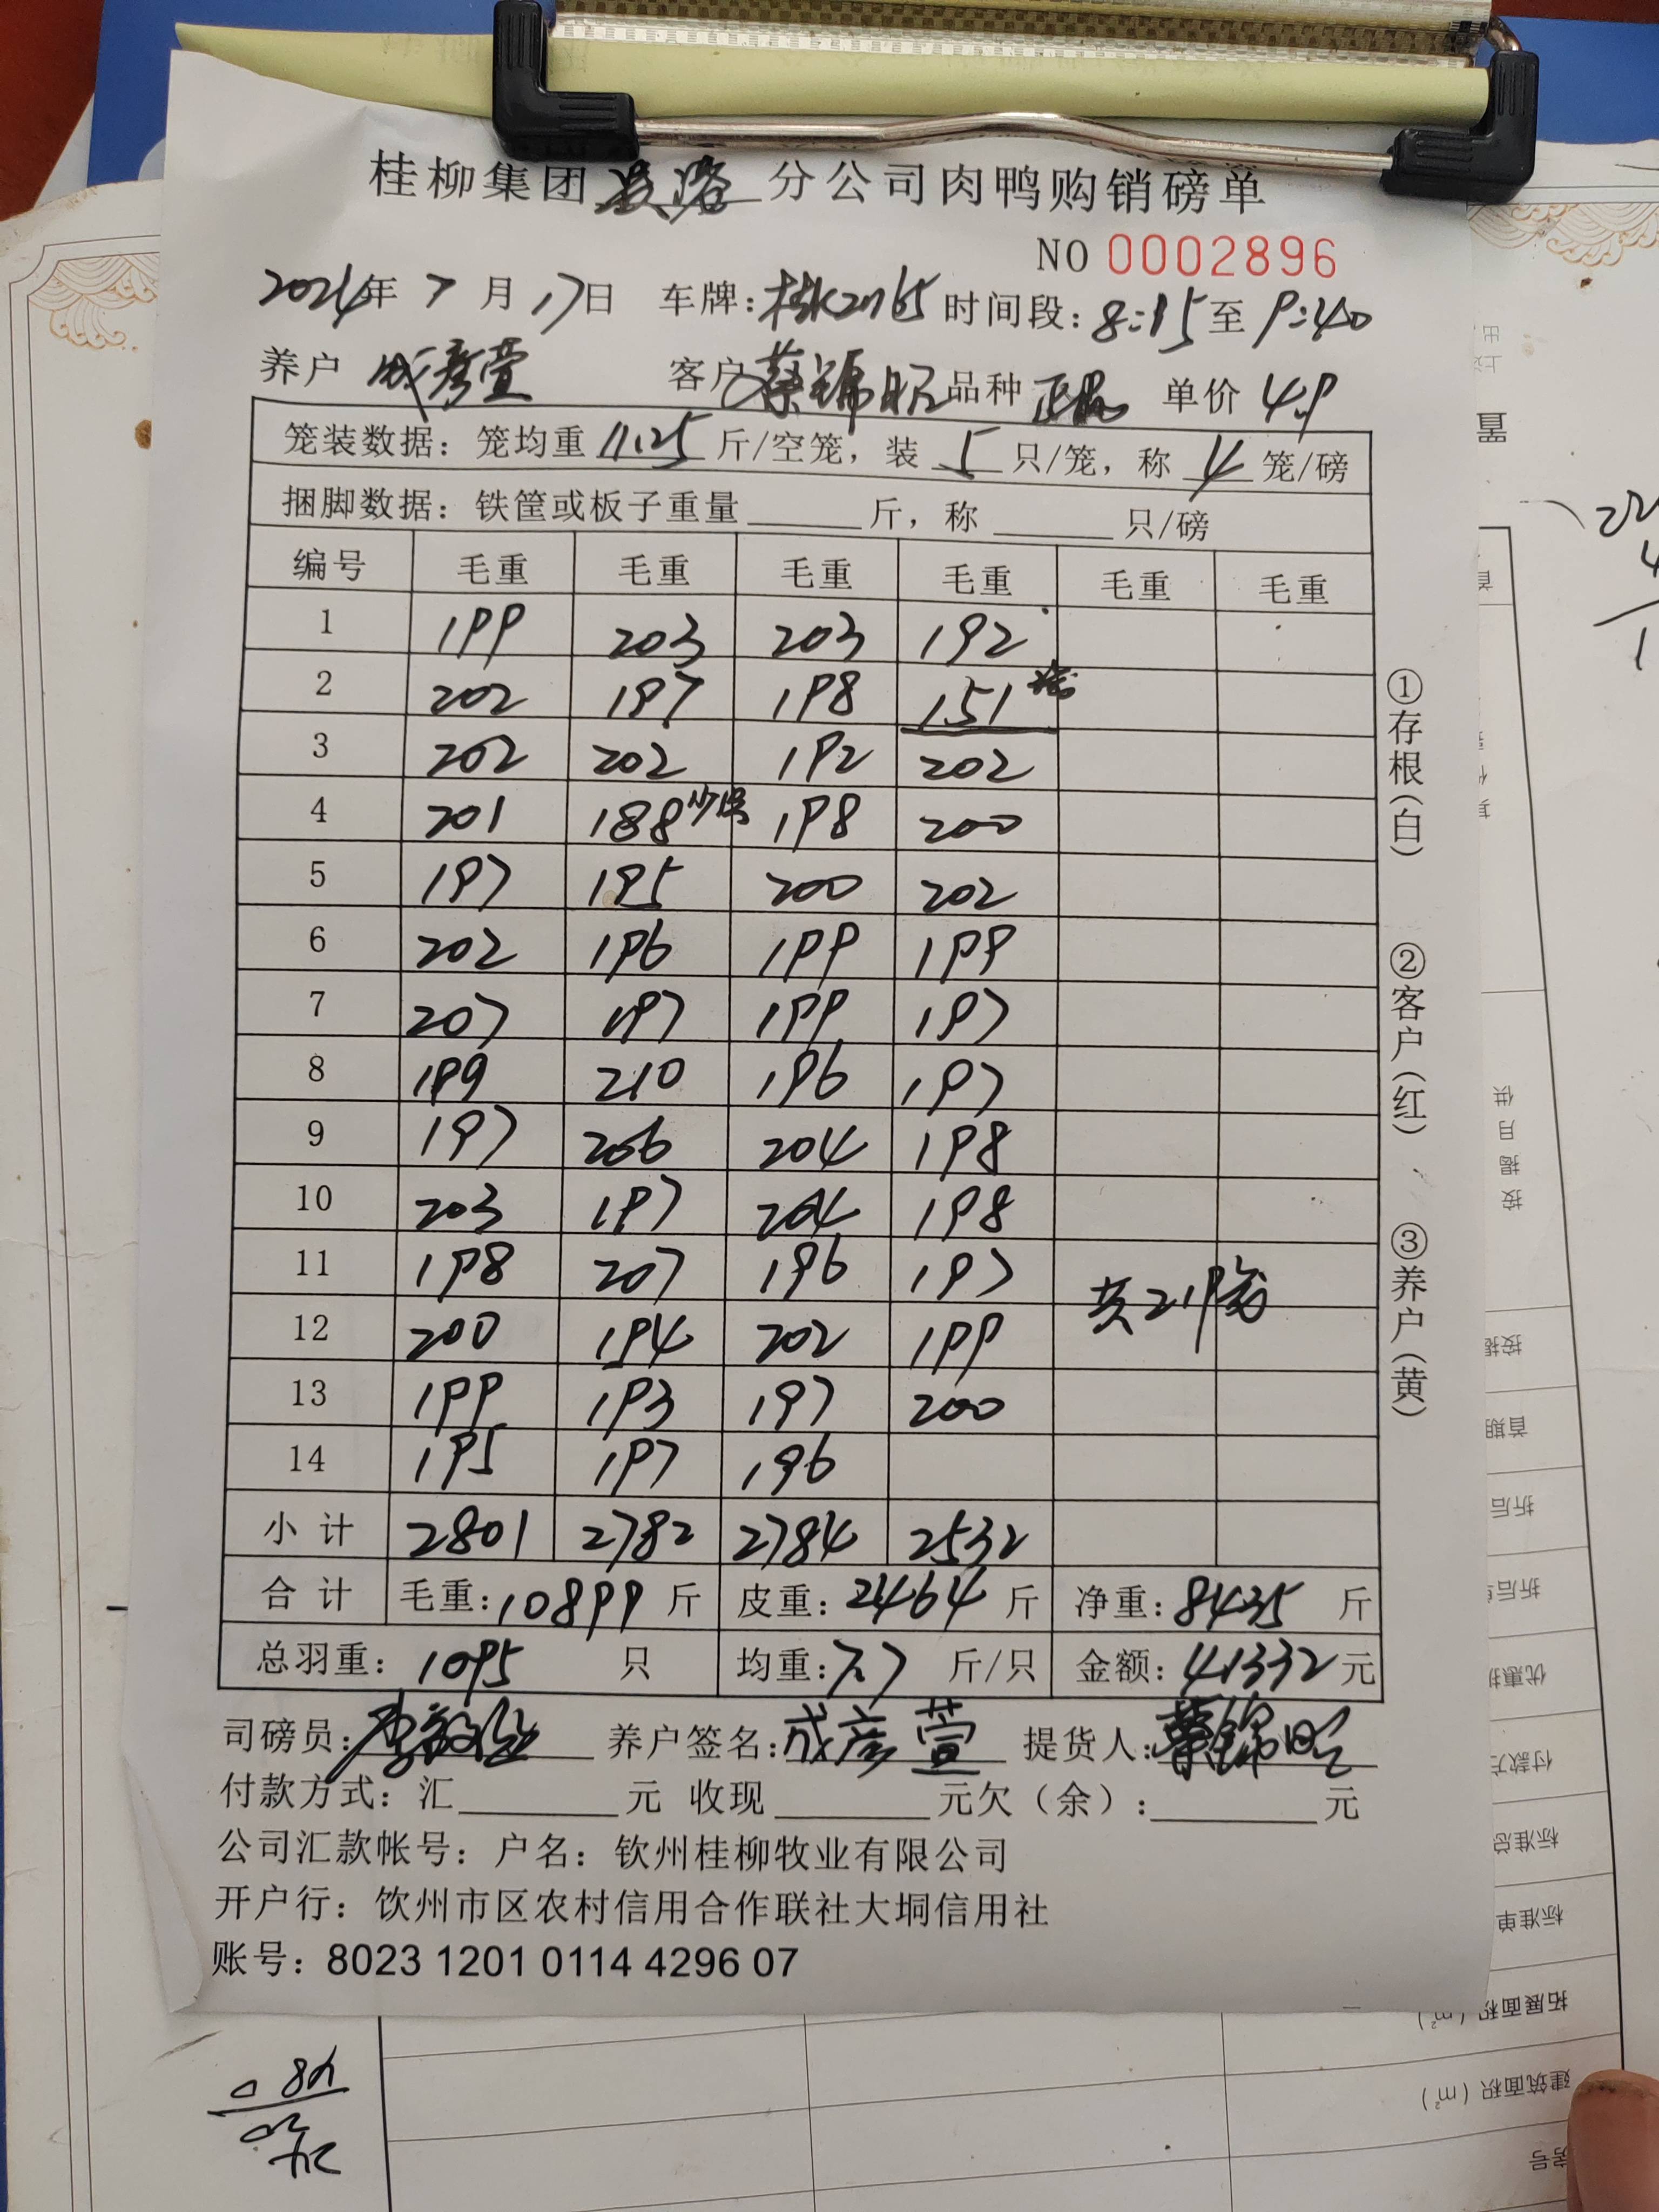 桂柳集团 分公司肉鸭购销磅单
NO 0002896
2024年 7 月 17日 车牌: 时间段: 8:15 至 9:40
养户 成彦萱 客户 蔡锦昭 品种 单价 4.9
笼装数据: 笼均重 11.25 斤/空笼, 装 5 只/笼, 称 4 笼/磅
捆脚数据: 铁筐或板子重量 斤, 称 只/磅
编号 毛重 毛重 毛重 毛重 毛重 毛重
1 199 203 203 192
2 202 197 198 151
3 202 202 192 202
4 201 188 198 200
5 197 195 200 202
6 202 196 199 199
7 207 197 199 197
8 199 210 196 197
9 197 206 204 198
10 203 197 204 198
11 198 207 196 197 共219笼
12 200 194 202 199
13 199 193 197 200
14 195 197 196
小计 2801 2782 2784 2532
合计 毛重: 10899 斤 皮重: 2464 斤 净重: 8435 斤
总羽重: 1095 只 均重: 7.7 斤/只 金额: 41332 元
司磅员: 养户签名: 成彦萱 提货人: 蔡锦昭
付款方式: 汇 元 收现 元欠(余): 元
公司汇款帐号: 户名: 钦州桂柳牧业有限公司
开户行: 钦州市区农村信用合作联社大垌信用社
账号: 8023 1201 0114 4296 07
①存根(白) ②客户(红) ③养户(黄)
置
供
月
揭
按
按揭
首期
折后
折后单
优惠折
付款方
标准总
标准单
拓展面积 (m²)
建筑面积 (m²)
房号